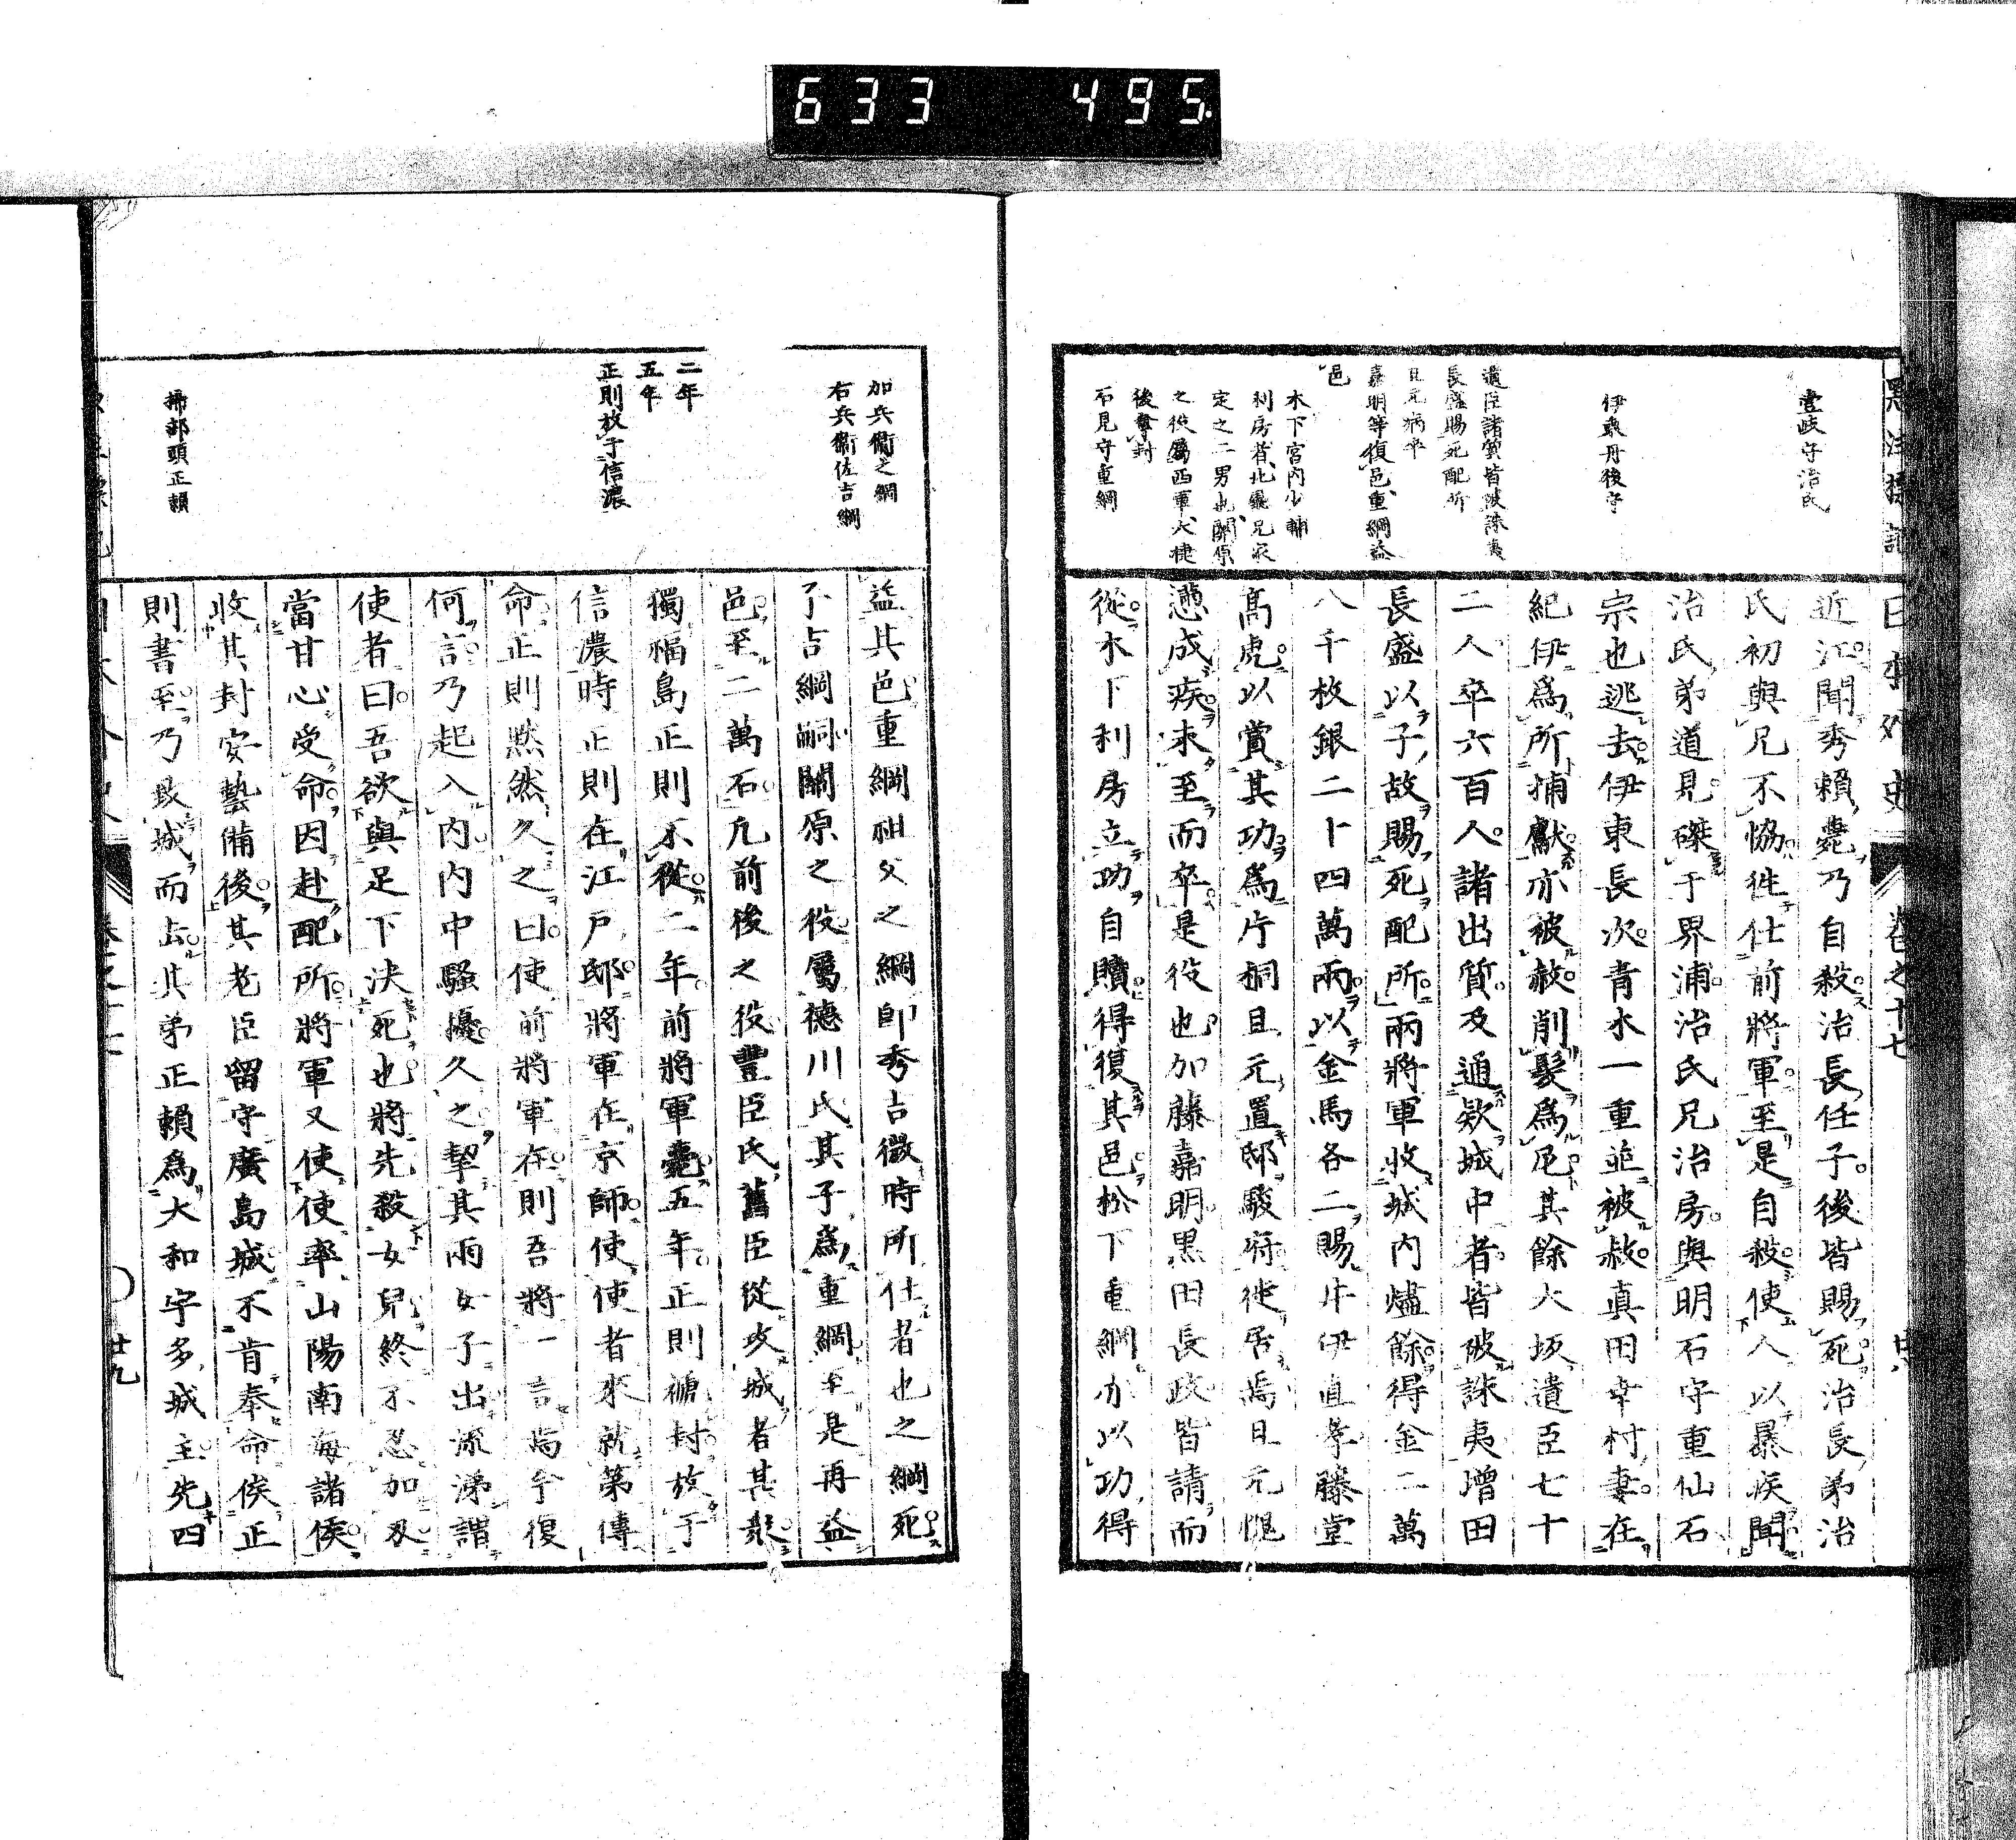 633 495
日本外史 卷之十七 廿八
壹岐守治氏
伊東丹後守
遺臣諸質皆被誅夷
長盛賜死配所
且元病卒
嘉明等復邑、重綱益
邑
木下宮内少輔
利房者、北廳兄家
定之二男也、關原
之役屬西軍、大捷
後奪封
石見守重綱
近江聞秀賴薨乃自殺治長任子後皆賜死治長弟治
氏初與兄不恊徃仕前將軍至是自殺使人以暴疾聞
治氏弟道見磔于界浦治氏兄治房與明石守重仙石
宗也逃去伊東長次青木一重並被赦真田幸村妻在
紀伊爲所捕獻亦被赦削髮爲尼其餘大坂遺臣七十
二人卒六百人諸出質及通欵城中者皆破誅夷增田
長盛以子故賜死配所兩將軍收城内燼餘得金二萬
八千枚銀二十四萬兩以金馬各二賜井伊直孝藤堂
高虎以賞其功爲片桐且元置邸駿府徙居焉且元愧
懣成疾未至而卒是役也加藤嘉明黒田長政皆請而
從木下利房立功自贖得復其邑松下重綱亦以功得
加兵衞之綱
右兵衞佐吉綱
二年
五年
正則放于信濃
掃部頭正賴
益其邑重綱祖父之綱即秀吉微時所仕者也之綱死
子吉綱嗣關原之役屬德川氏其子爲重綱至是再益
邑至二萬石凢前後之役豐臣氏舊臣從攻城者甚衆
獨福島正則不從二年前將軍薨五年正則褫封放于
信濃時正則在江戸邸將軍在京師使使者來就第傳
命正則黙然久之曰使前將軍在則吾將一言焉今復
何言乃起入内内中騷擾久之挈其兩女子出流涕謂
使者曰吾欲與足下決死也將先殺女兒終不忍加刄
當甘心受命因赴配所將軍又使使率山陽南海諸侯
收其封安藝備後其老臣留守廣島城不肯奉命俟正
則書至乃致城而去其弟正賴爲大和宇多城主先四
廿九